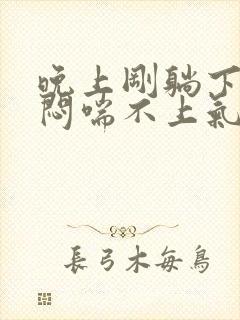 晚上剛躺下
悶喘不上氣
長弓木每鳥